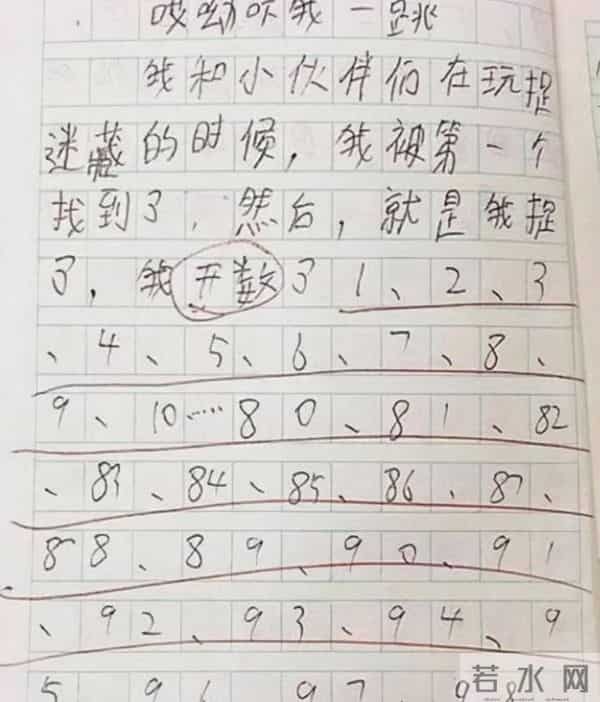 哎呦吓我一跳
我和小伙伴们在玩捉
迷藏的时候，我被第一个
找到了，然后，就是我捉
了，我开数了1、2、3
、4、5、6、7、8、
9、10……80、81、82
、83、84、85、86、87、
88、89、90、91
、92、93、94、9
5 96 97 98
若水网